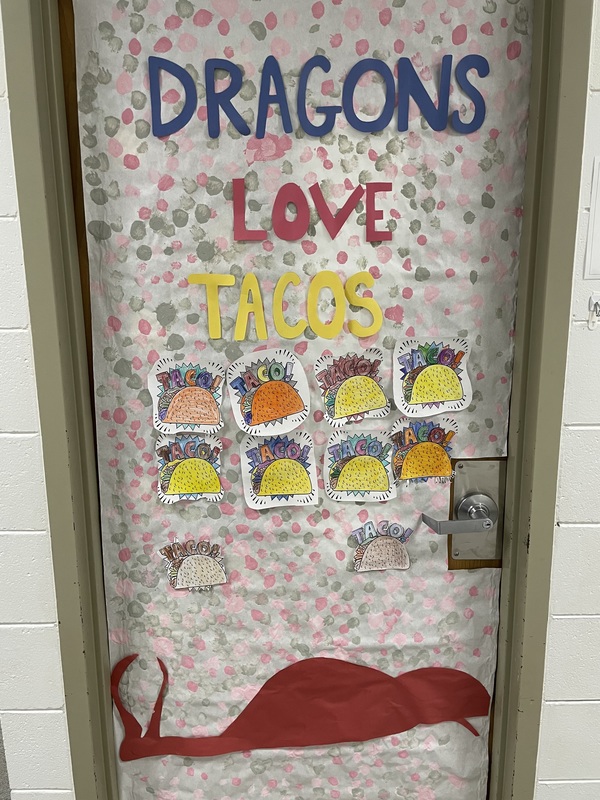 DRAGONS
LOVE
TACOS
TACO! TACO! TACO! TACO!
TACO! TACO! TACO! TACO!
TACO! TACO!